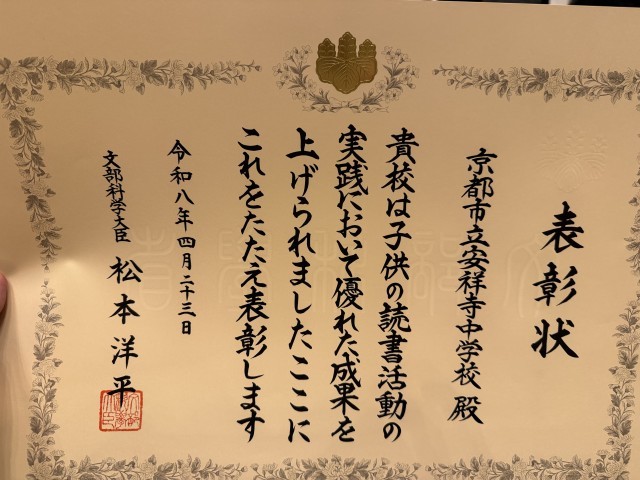 表彰状
京都市立安祥寺中学校 殿
貴校は子供の読書活動の
実践において優れた成果を
上げられましたここに
これをたたえ表彰します
令和八年四月二十三日
文部科学大臣 松本洋平